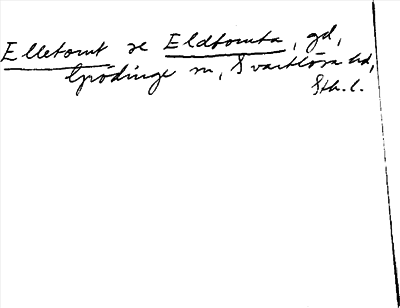 Elletomt se Eldtomta, gd,
Grödinge sn, Svartlösa hd,
Sth.l.